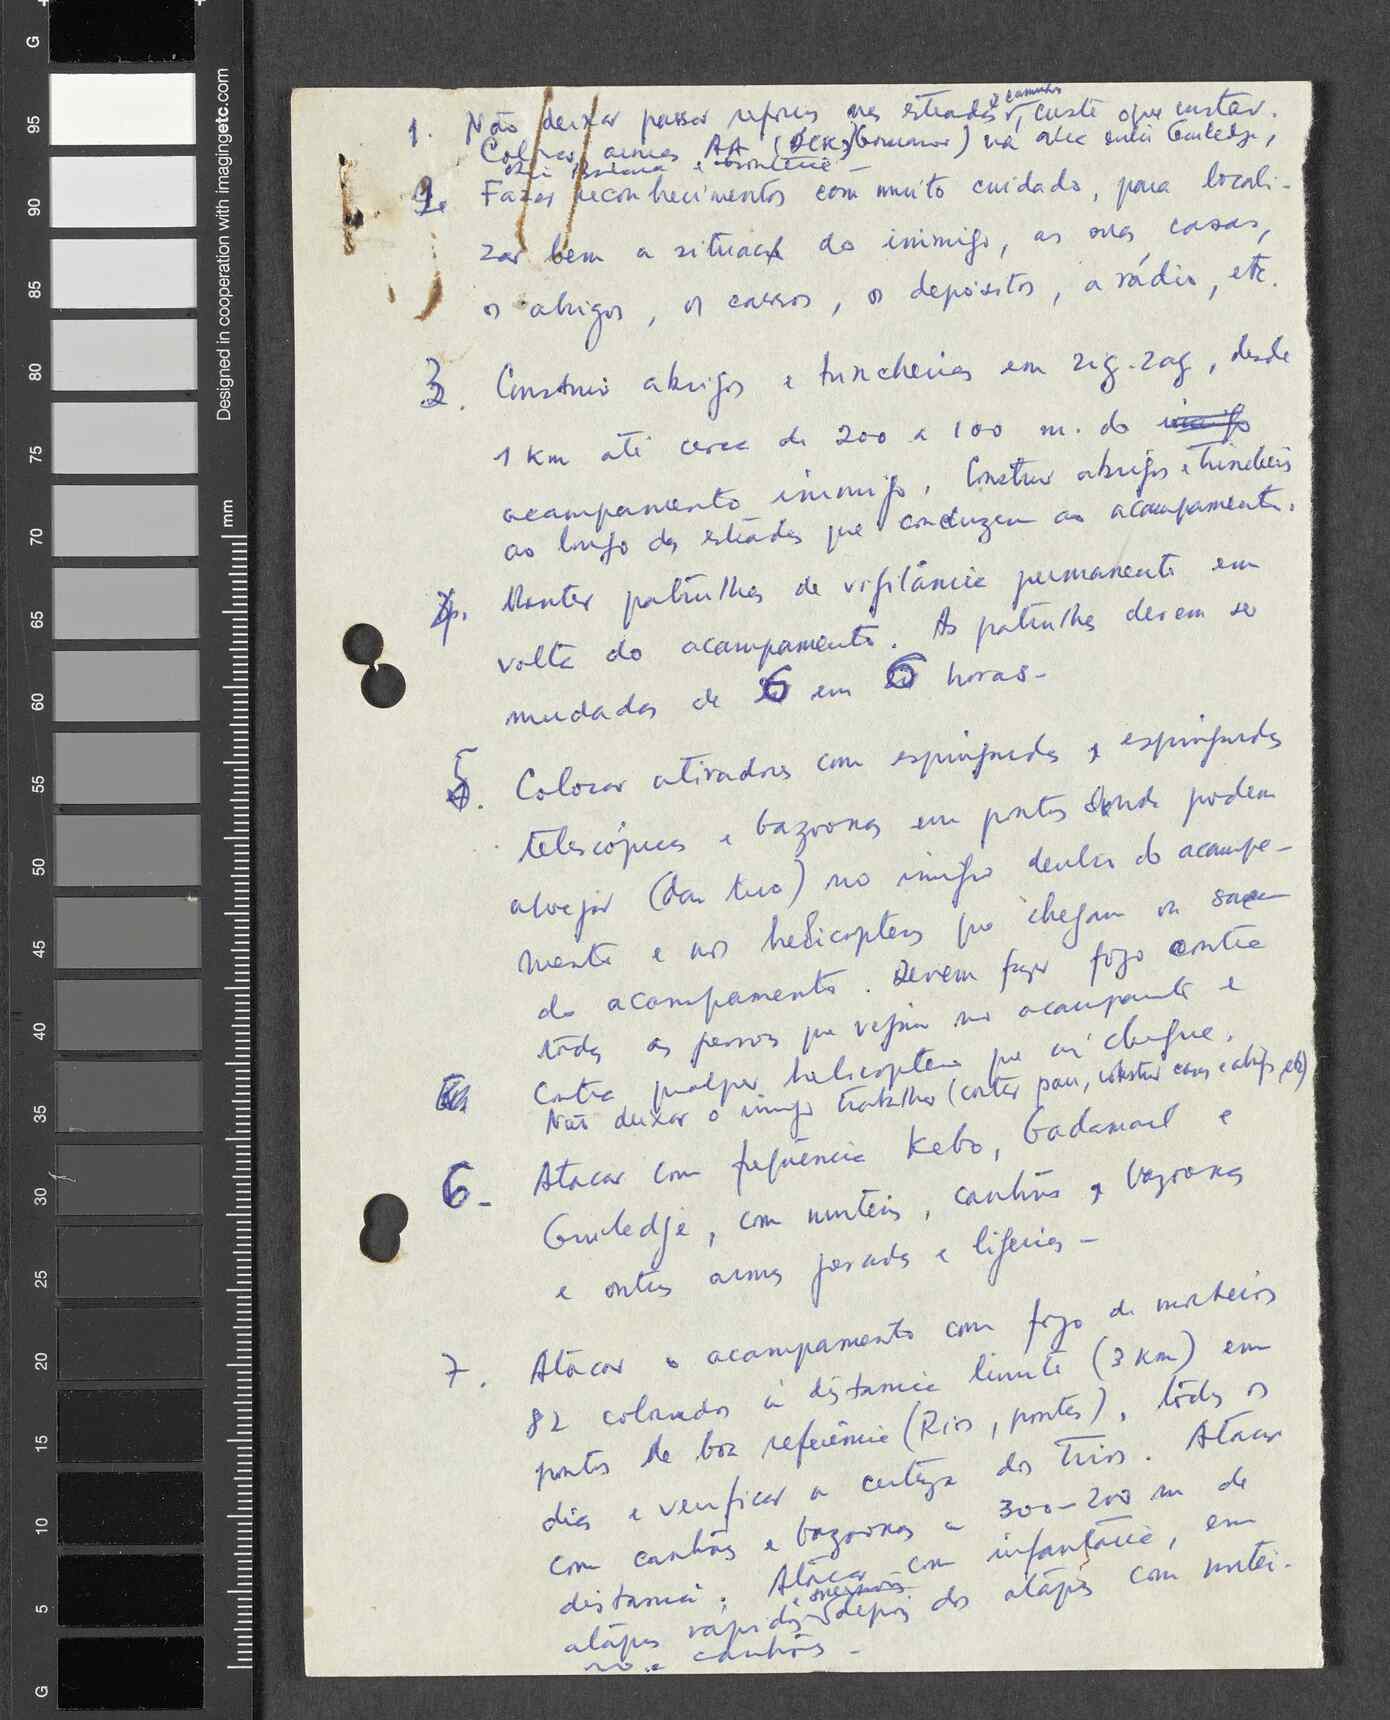 1. Não deixar passar reforços nas estradas e caminhos, custe o que custar.
Colocar armas AA (DCK) na área entre Guiledje,
e fronteira -
2. Fazer reconhecimentos com muito cuidado, para locali-
zar bem a situação do inimigo, as suas casas,
os abrigos, os carros, os depósitos, a rádio, etc.
3. Construir abrigos e trincheiras em zig-zag, desde
1 Km até cerca de 200 a 100 m. do
acampamento inimigo. Construir abrigos e trincheiras
ao longo das estradas que conduzem ao acampamento.
4. Manter patrulhas de vigilância permanente em
volta do acampamento. As patrulhas devem ser
mudadas de 6 em 6 horas -
5. Colocar atiradores com espingardas e espingardas
telescópicas e bazookas em pontos donde podem
alvejar (dar tiro) no inimigo dentro do acampa-
mento e nos helicopteros que chegam ou saem
do acampamento. Devem fazer fogo contra
todas as pessoas que vejam no acampamento e
contra qualquer helicoptero que aí chegue.
Não deixar o inimigo trabalhar (cortar pau, construir casas e abrigos, etc)
6. Atacar com frequência Kebo, Gadamael e
Guiledje, com morteiros, canhões, bazookas
e outras armas pesadas e ligeiras -
7. Atacar o acampamento com fogo de morteiros
82 colocados à distancia limite (3 Km) em
pontos de boa referência (Rios, pontes), todos os
dias e verificar a certeza dos tiros. Atacar
com canhões e bazookas a 300-200 m de
distancia. Atacar com infantaria, em
ataques rápidos depois dos ataques com mortei-
ros e canhões -